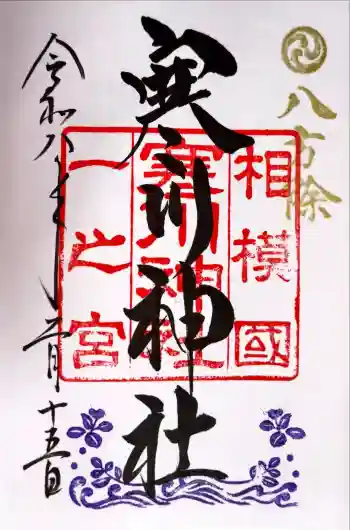 八方除
相模國
一之宮
寒川神社
寒川神社
令和八年二月十五日